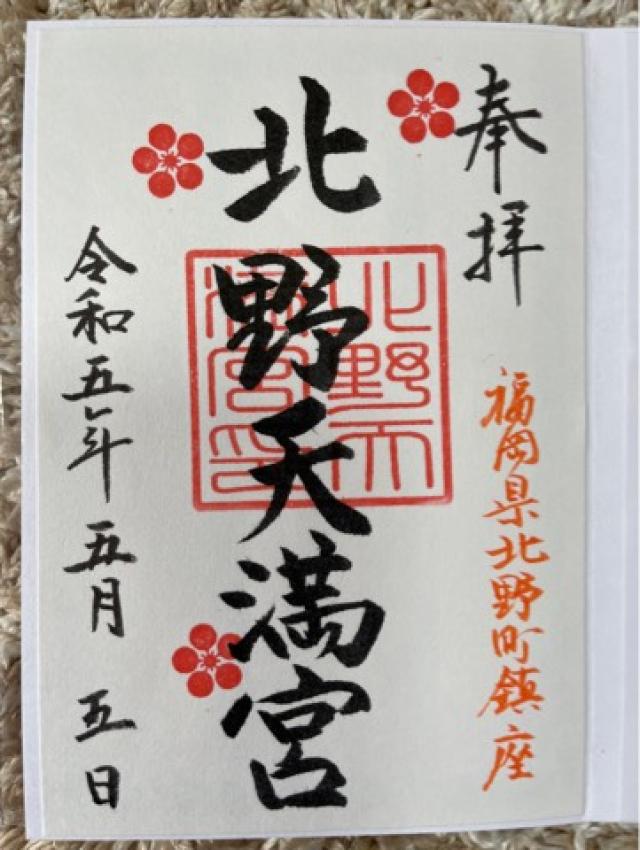 奉拝
福岡県北野町鎮座
北野天満宮
北野天満宮印
令和五年五月五日